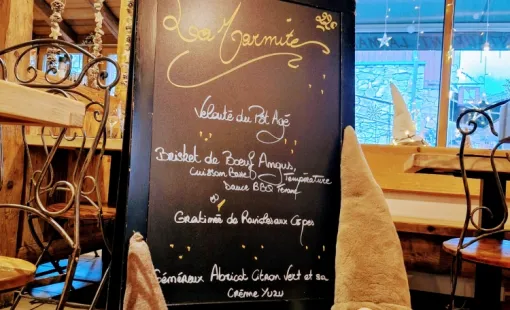 La Marmite
Velouté du Pot Agé
Brisket de Boeuf Angus,
Cuisson Basse Température
Sauce BBQ
ou
Gratinée de Ravioles aux Cèpes
Généreux Abricot Citron Vert et sa
Crème Yuzu